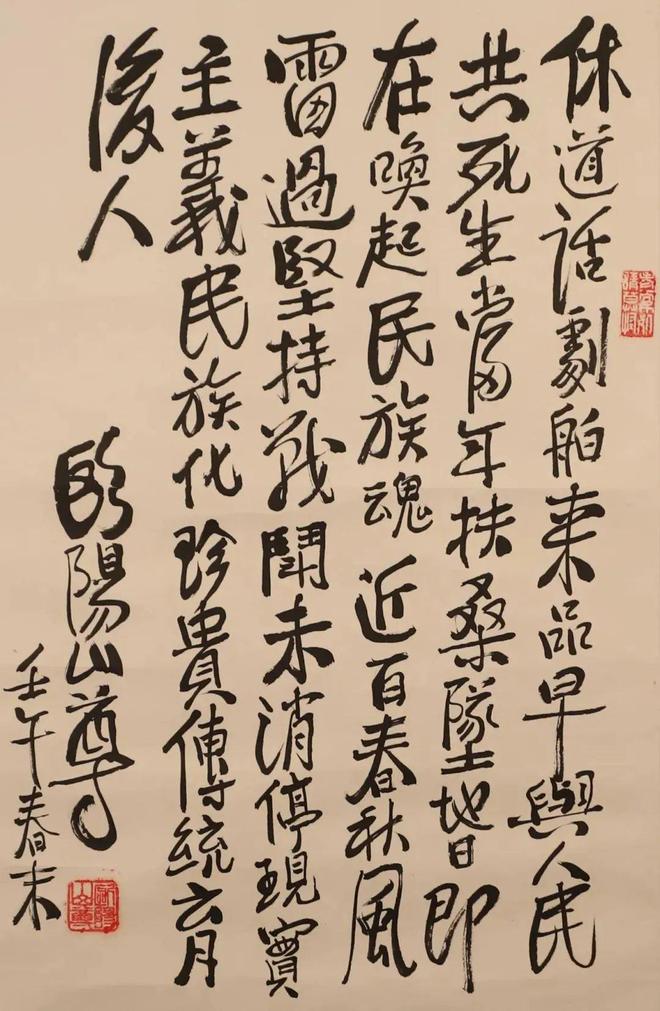 休道話劇舶来品早與人民
共死生當年扶桑墜地旹即
在喚起民族魂近百春秋風
雷過堅持戰鬪未消停現實
主義民族化珍貴傳統育
後人
歐陽山尊
壬午春末